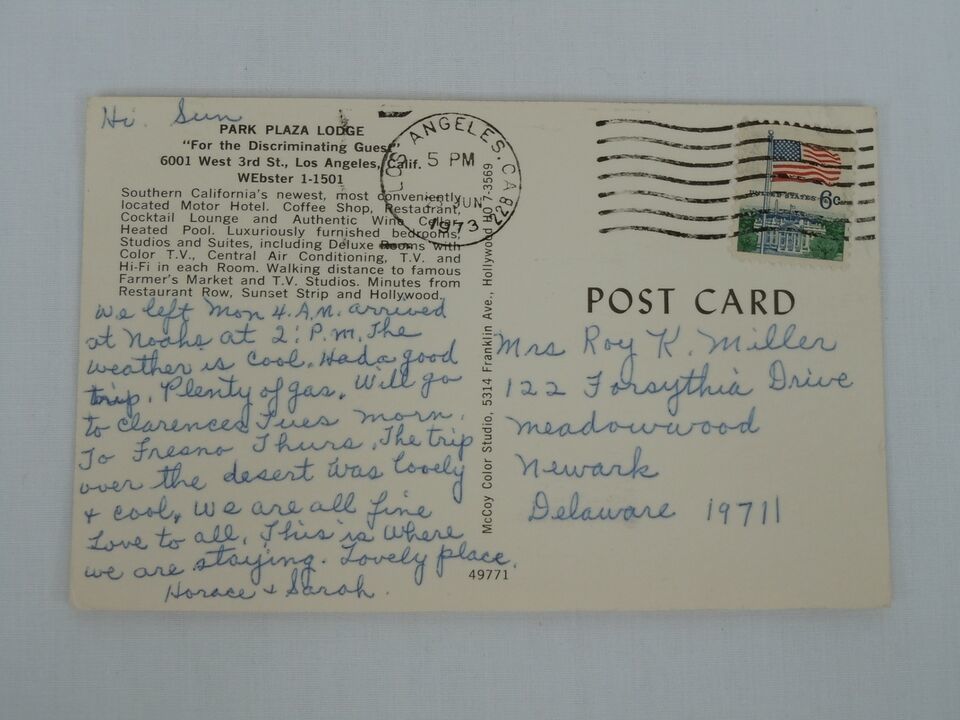 Hi Sun
PARK PLAZA LODGE
"For the Discriminating Guest"
6001 West 3rd St., Los Angeles, Calif.
WEbster 1-1501
Southern California's newest, most conveniently
located Motor Hotel. Coffee Shop, Restaurant,
Cocktail Lounge and Authentic Wine Cellar,
Heated Pool. Luxuriously furnished bedrooms,
Studios and Suites, including Deluxe Rooms with
Color T.V., Central Air Conditioning, T.V. and
Hi-Fi in each Room. Walking distance to famous
Farmer's Market and T.V. Studios. Minutes from
Restaurant Row, Sunset Strip and Hollywood.
We left Mon 4. A.M. arrived
at Noahs at 2: P.M. The
weather is cool. Had a good
trip. Plenty of gas. Will go
to Clarences Tues morn.
To Fresno Thurs. The trip
over the desert was lovely
& cool. We are all fine
Love to all. This is where
we are staying. Lovely place.
Horace & Sarah.
LOS ANGELES, CA
5 PM
JUN
1973
McCoy Color Studio, 5314 Franklin Ave., Hollywood HO 7-3569
49771
UNITED STATES 6c
POST CARD
Mrs Roy K. Miller
122 Forsythia Drive
Meadowwood
Newark
Delaware 19711